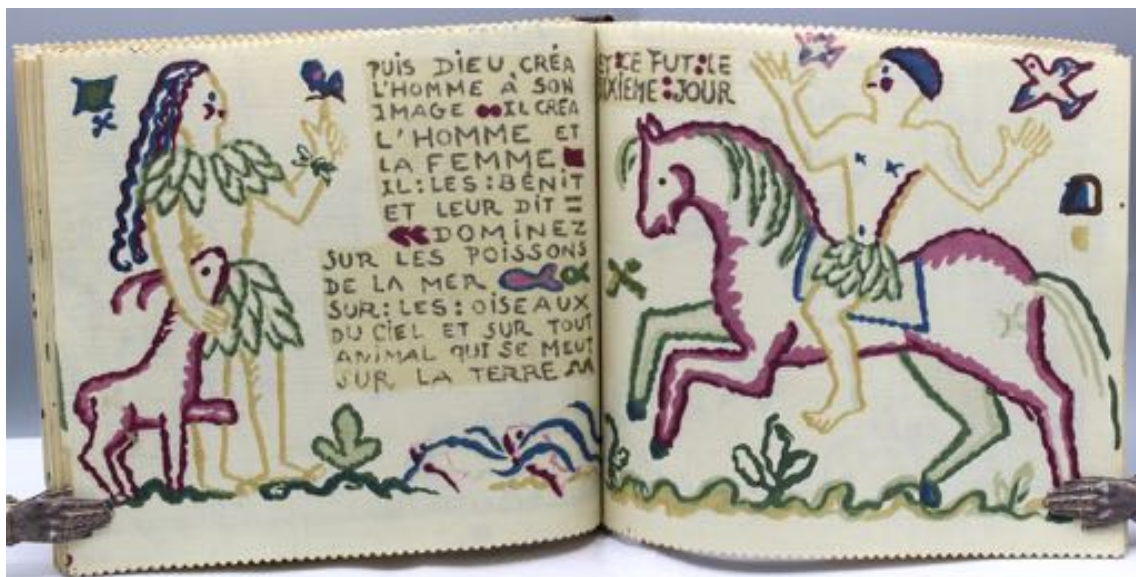 PUIS DIEU CRÉA
L'HOMME A SON
IMAGE IL CRÉA
L'HOMME ET
LA FEMME
IL:LES:BÉNIT
ET LEUR DIT =
DOMINEZ
SUR LES POISSONS
DE LA MER
SUR:LES:OISEAUX
DU CIEL ET SUR TOUT
ANIMAL QUI SE MEUT
SUR LA TERRE
ET:CE FUT:LE
SIXIÈME:JOUR